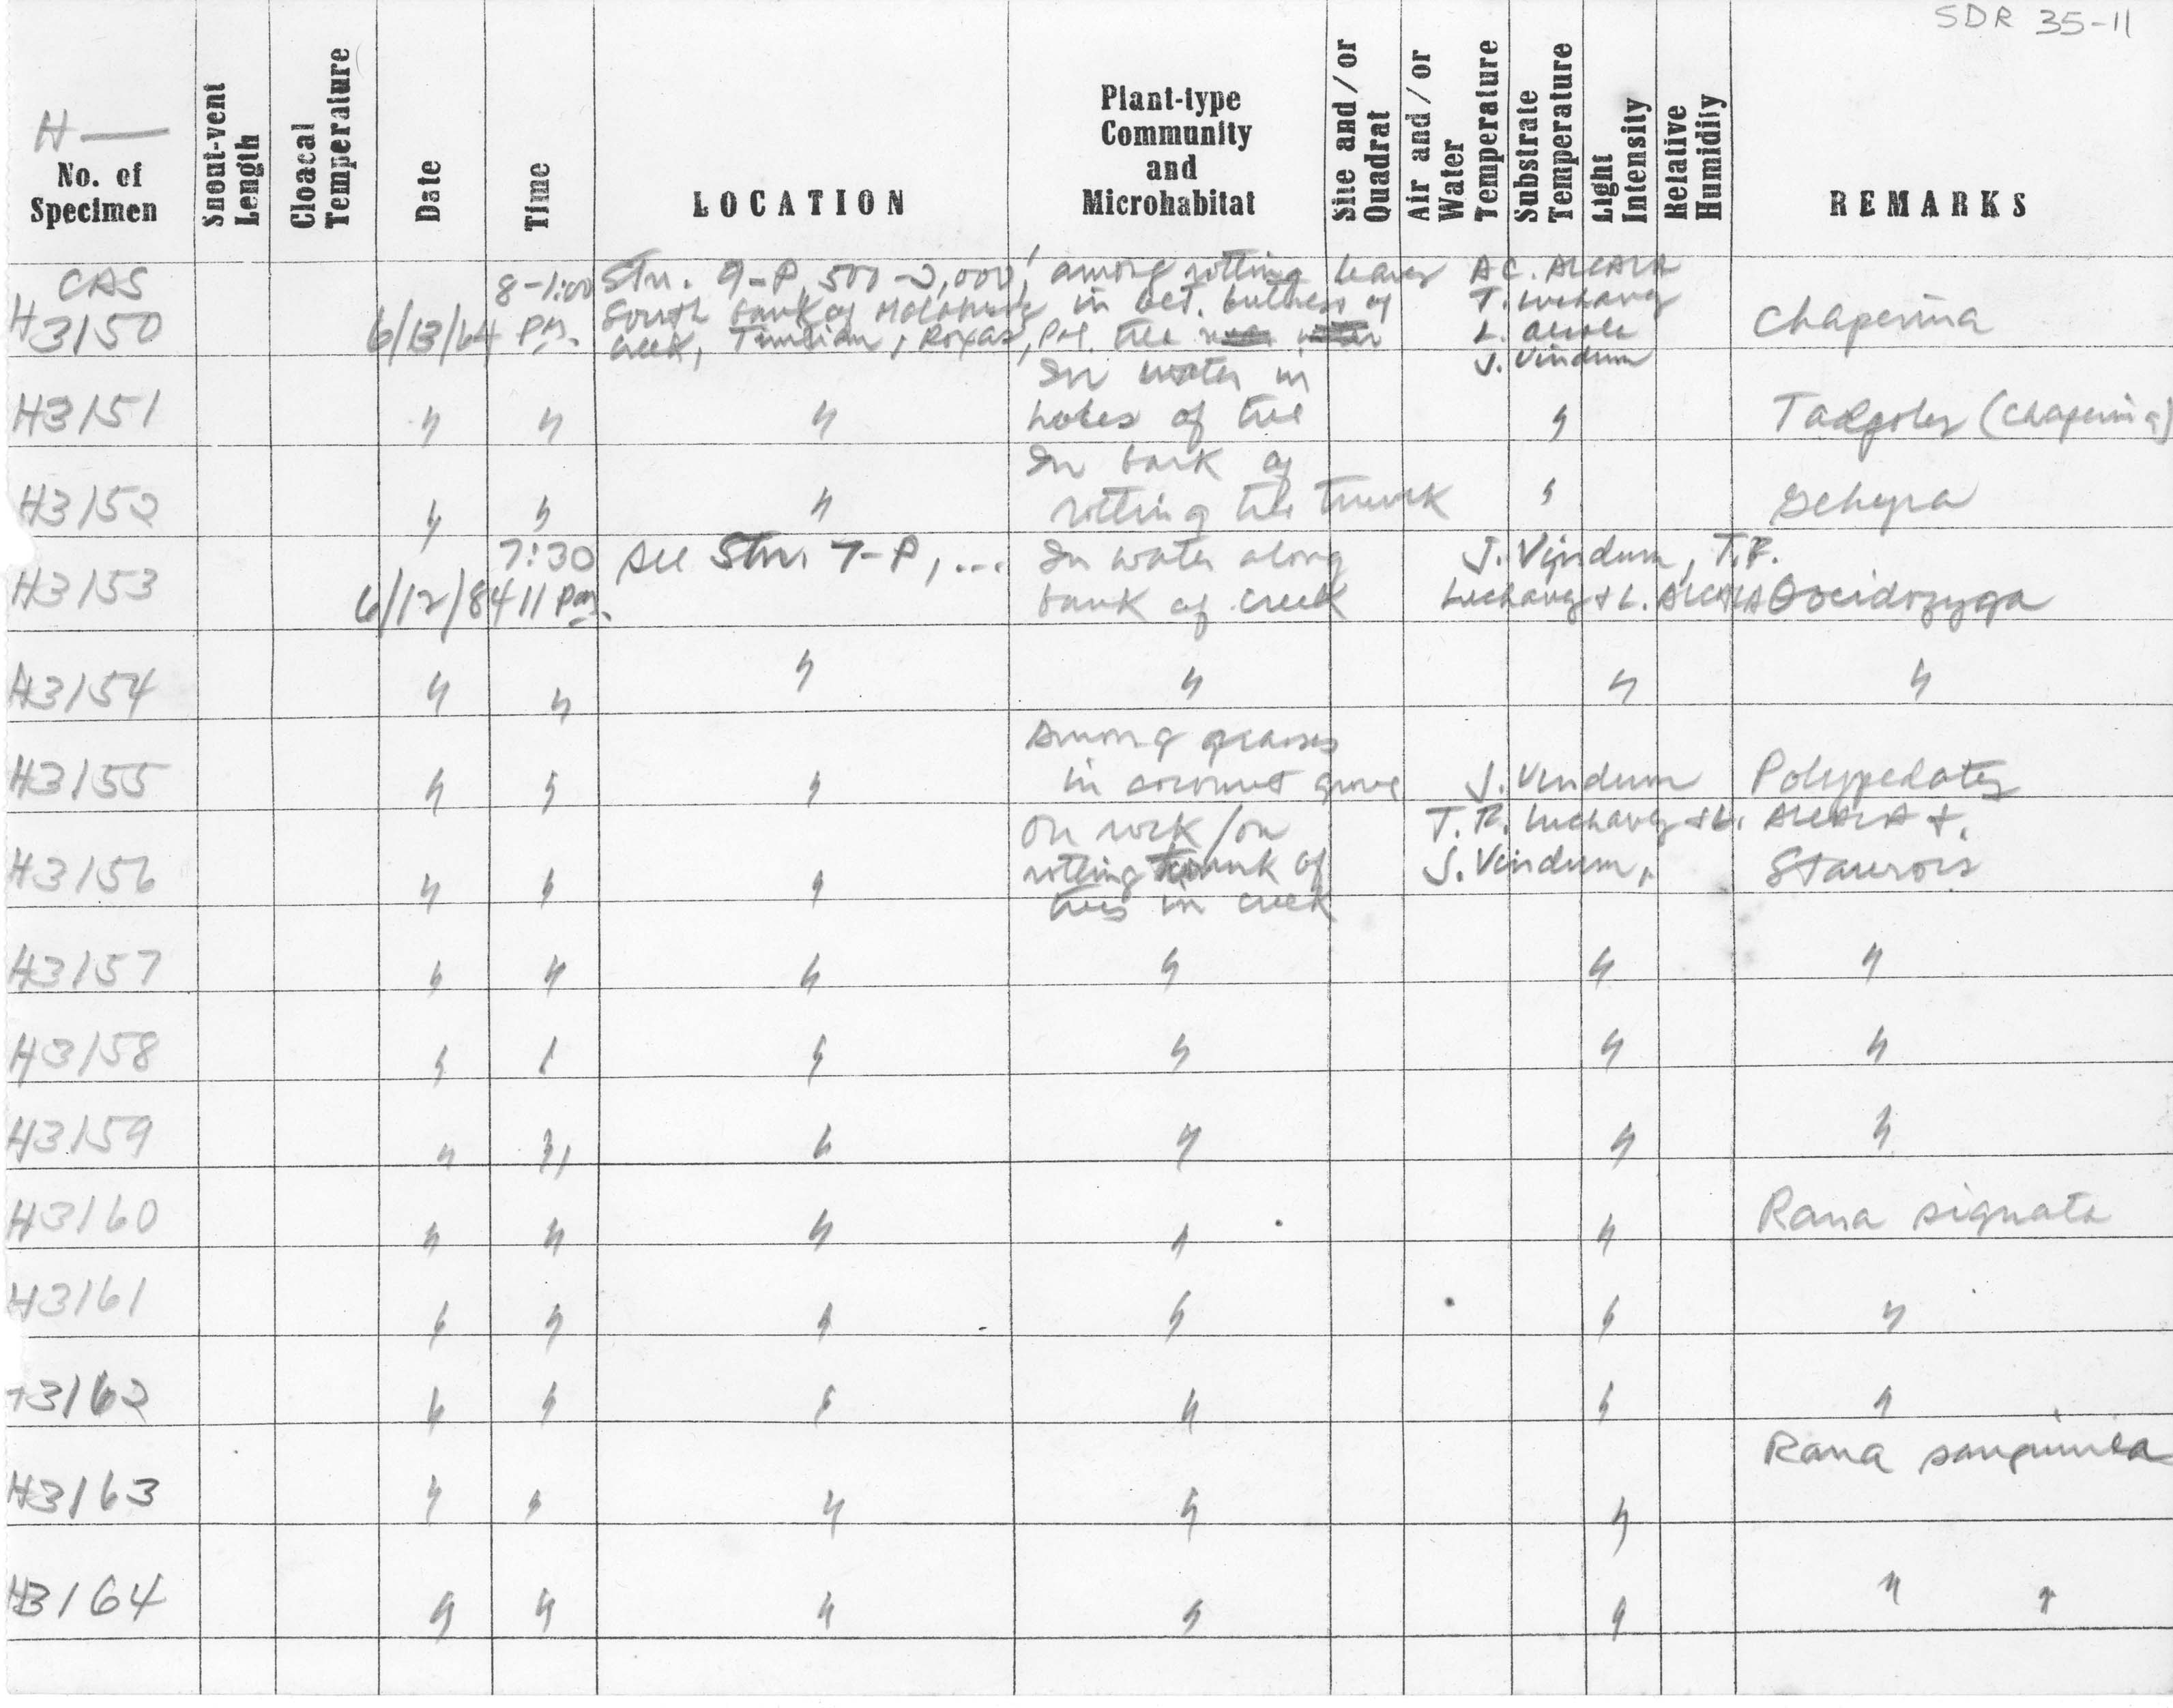 SDR 35-11
H—
No. of Specimen
Snout-vent Length
Cloacal Temperature
Date
Time
LOCATION
Plant-type Community and Microhabitat
Site and/or Quadrat
Air and/or Water Temperature
Substrate Temperature
Light Intensity
Relative Humidity
REMARKS
CAS
H3150 6/13/64 8-1:00 Pm. Stn. 9-P, 500-2,000' South bank of creek, Roxas, Pal. among rotting leaves in bet. buttress of tree A C. ALCALA T. Luchavez L. Alcala J. Vindum Chaperina
H3151 " " " In water in holes of tree " Tadpoles (Chaperina)
H3152 " " " In bark of rotting tree trunk " Gehyra
H3153 6/12/84 7:30 11 Pm. See Stn. 7-P, ... In water along bank of creek J. Vindum, T.R. Luchavez & L. ALCALA Ooeidozyga
H3154 " " " " " "
H3155 " " " Among grasses in coconut grove J. Vindum Polypedates
H3156 " " " On rock/on rotting trunk of trees in creek T. R. Luchavez & L. ALCALA &. J. Vindum, Staurois
H3157 " " " " " "
H3158 " " " " " "
H3159 " " " " " "
H3160 " " " " " Rana signata
H3161 " " " " " "
H3162 " " " " " "
H3163 " " " " " Rana sanguinea
H3164 " " " " " " "